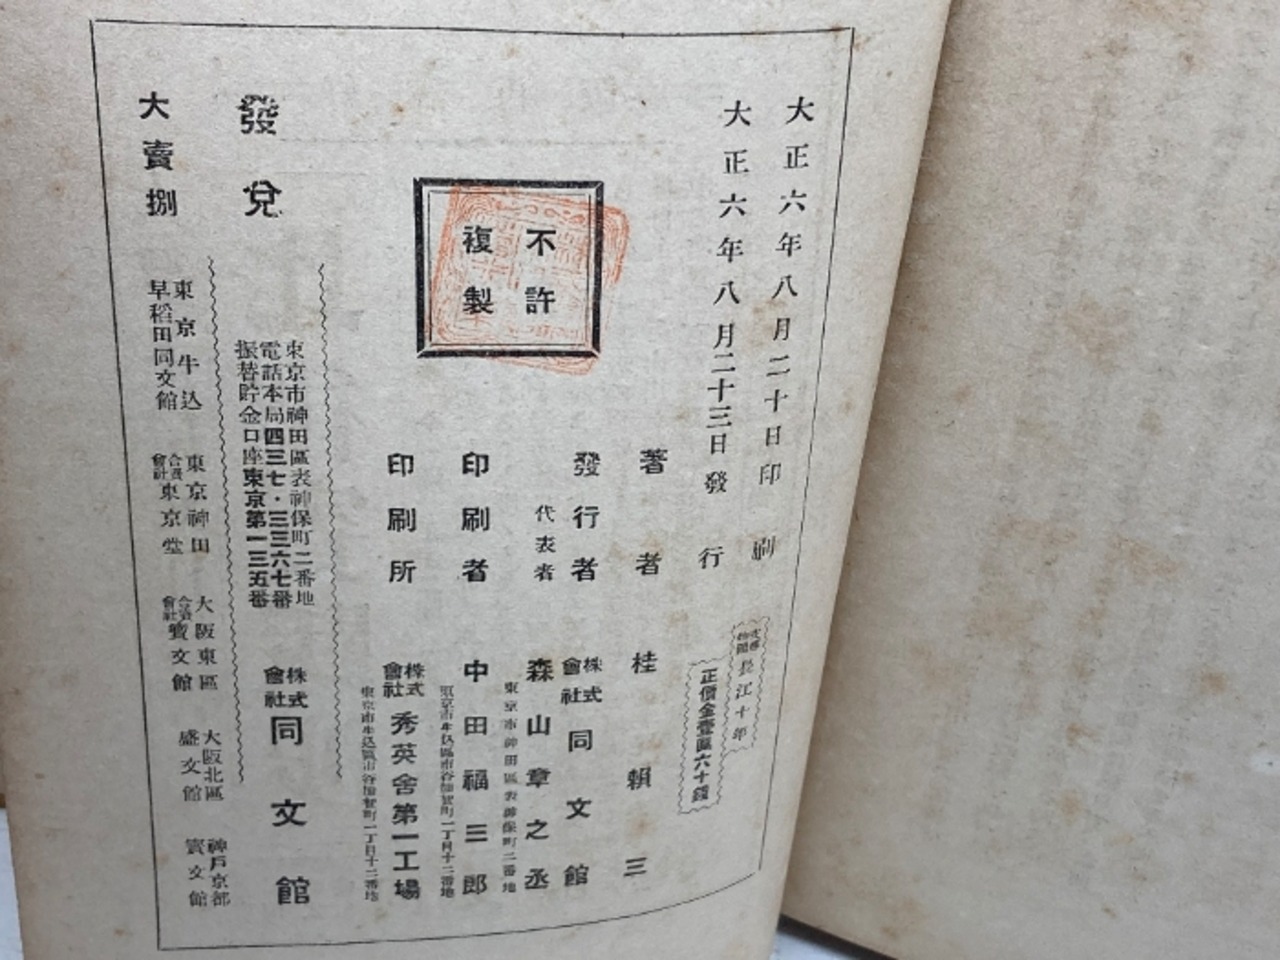 大正六年八月二十日印刷
大正六年八月二十三日發行
長江十年
正價金壹圓六十錢
著者 桂賴三
發行者 株式會社 同文館
代表者 森山章之丞
東京市神田區表神保町二番地
印刷者 中田福三郎
東京市牛込區市谷加賀町一丁目十二番地
印刷所 株式會社 秀英舍第一工場
東京市牛込區市谷加賀町一丁目十二番地
不許
複製
發兌
東京市神田區表神保町二番地
電話本局四三七・三三六七番
振替貯金口座東京第一三五番
株式會社 同文館
大賣捌
東京牛込
早稻田同文館
東京神田
合資會社 東京堂
大阪東區
合資會社 寳文館
大阪北區
盛文館
神戶京都
寳文館